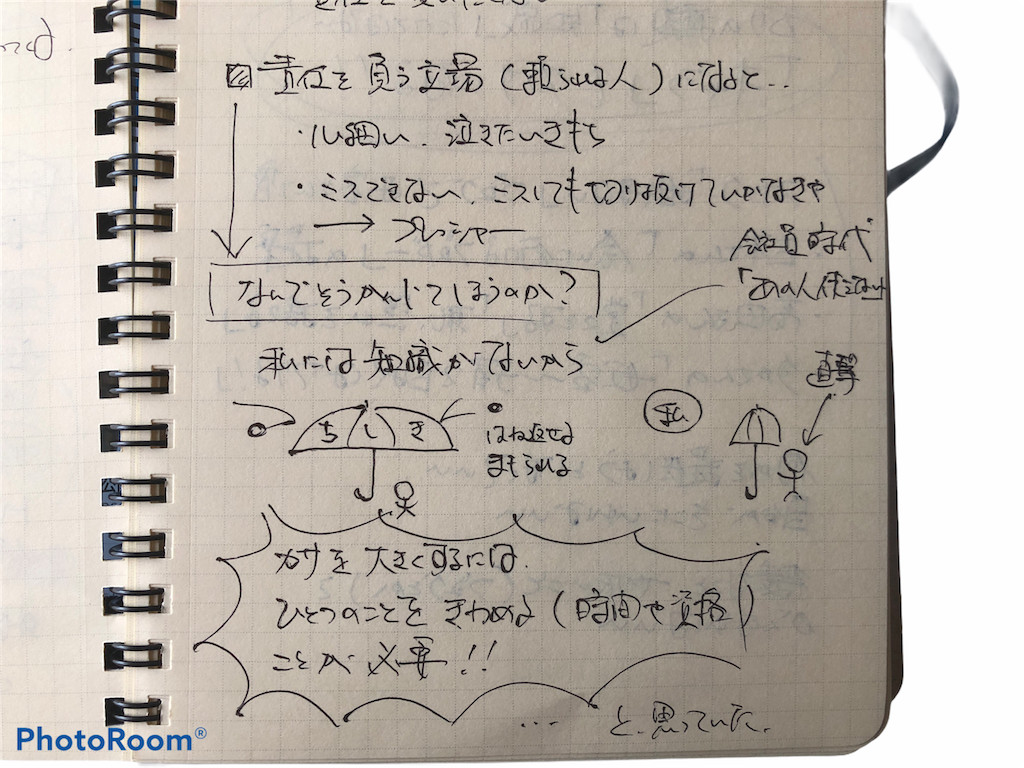 責任を負う立場(頼られる人)になると..
・心細い、泣きたいきもち
・ミスできない、ミスしても切り抜けていかなきゃ
→ プレッシャー
会社員時代
「あの人使えない」
なんでそうかんじてしまうのか?
私には知識がないから
直撃
ちしき
はね返せる
まもられる
私
カサを大きくするには
ひとつのことをきわめる(時間や資格)
ことが必要!!
... と思っていた.
PhotoRoom®